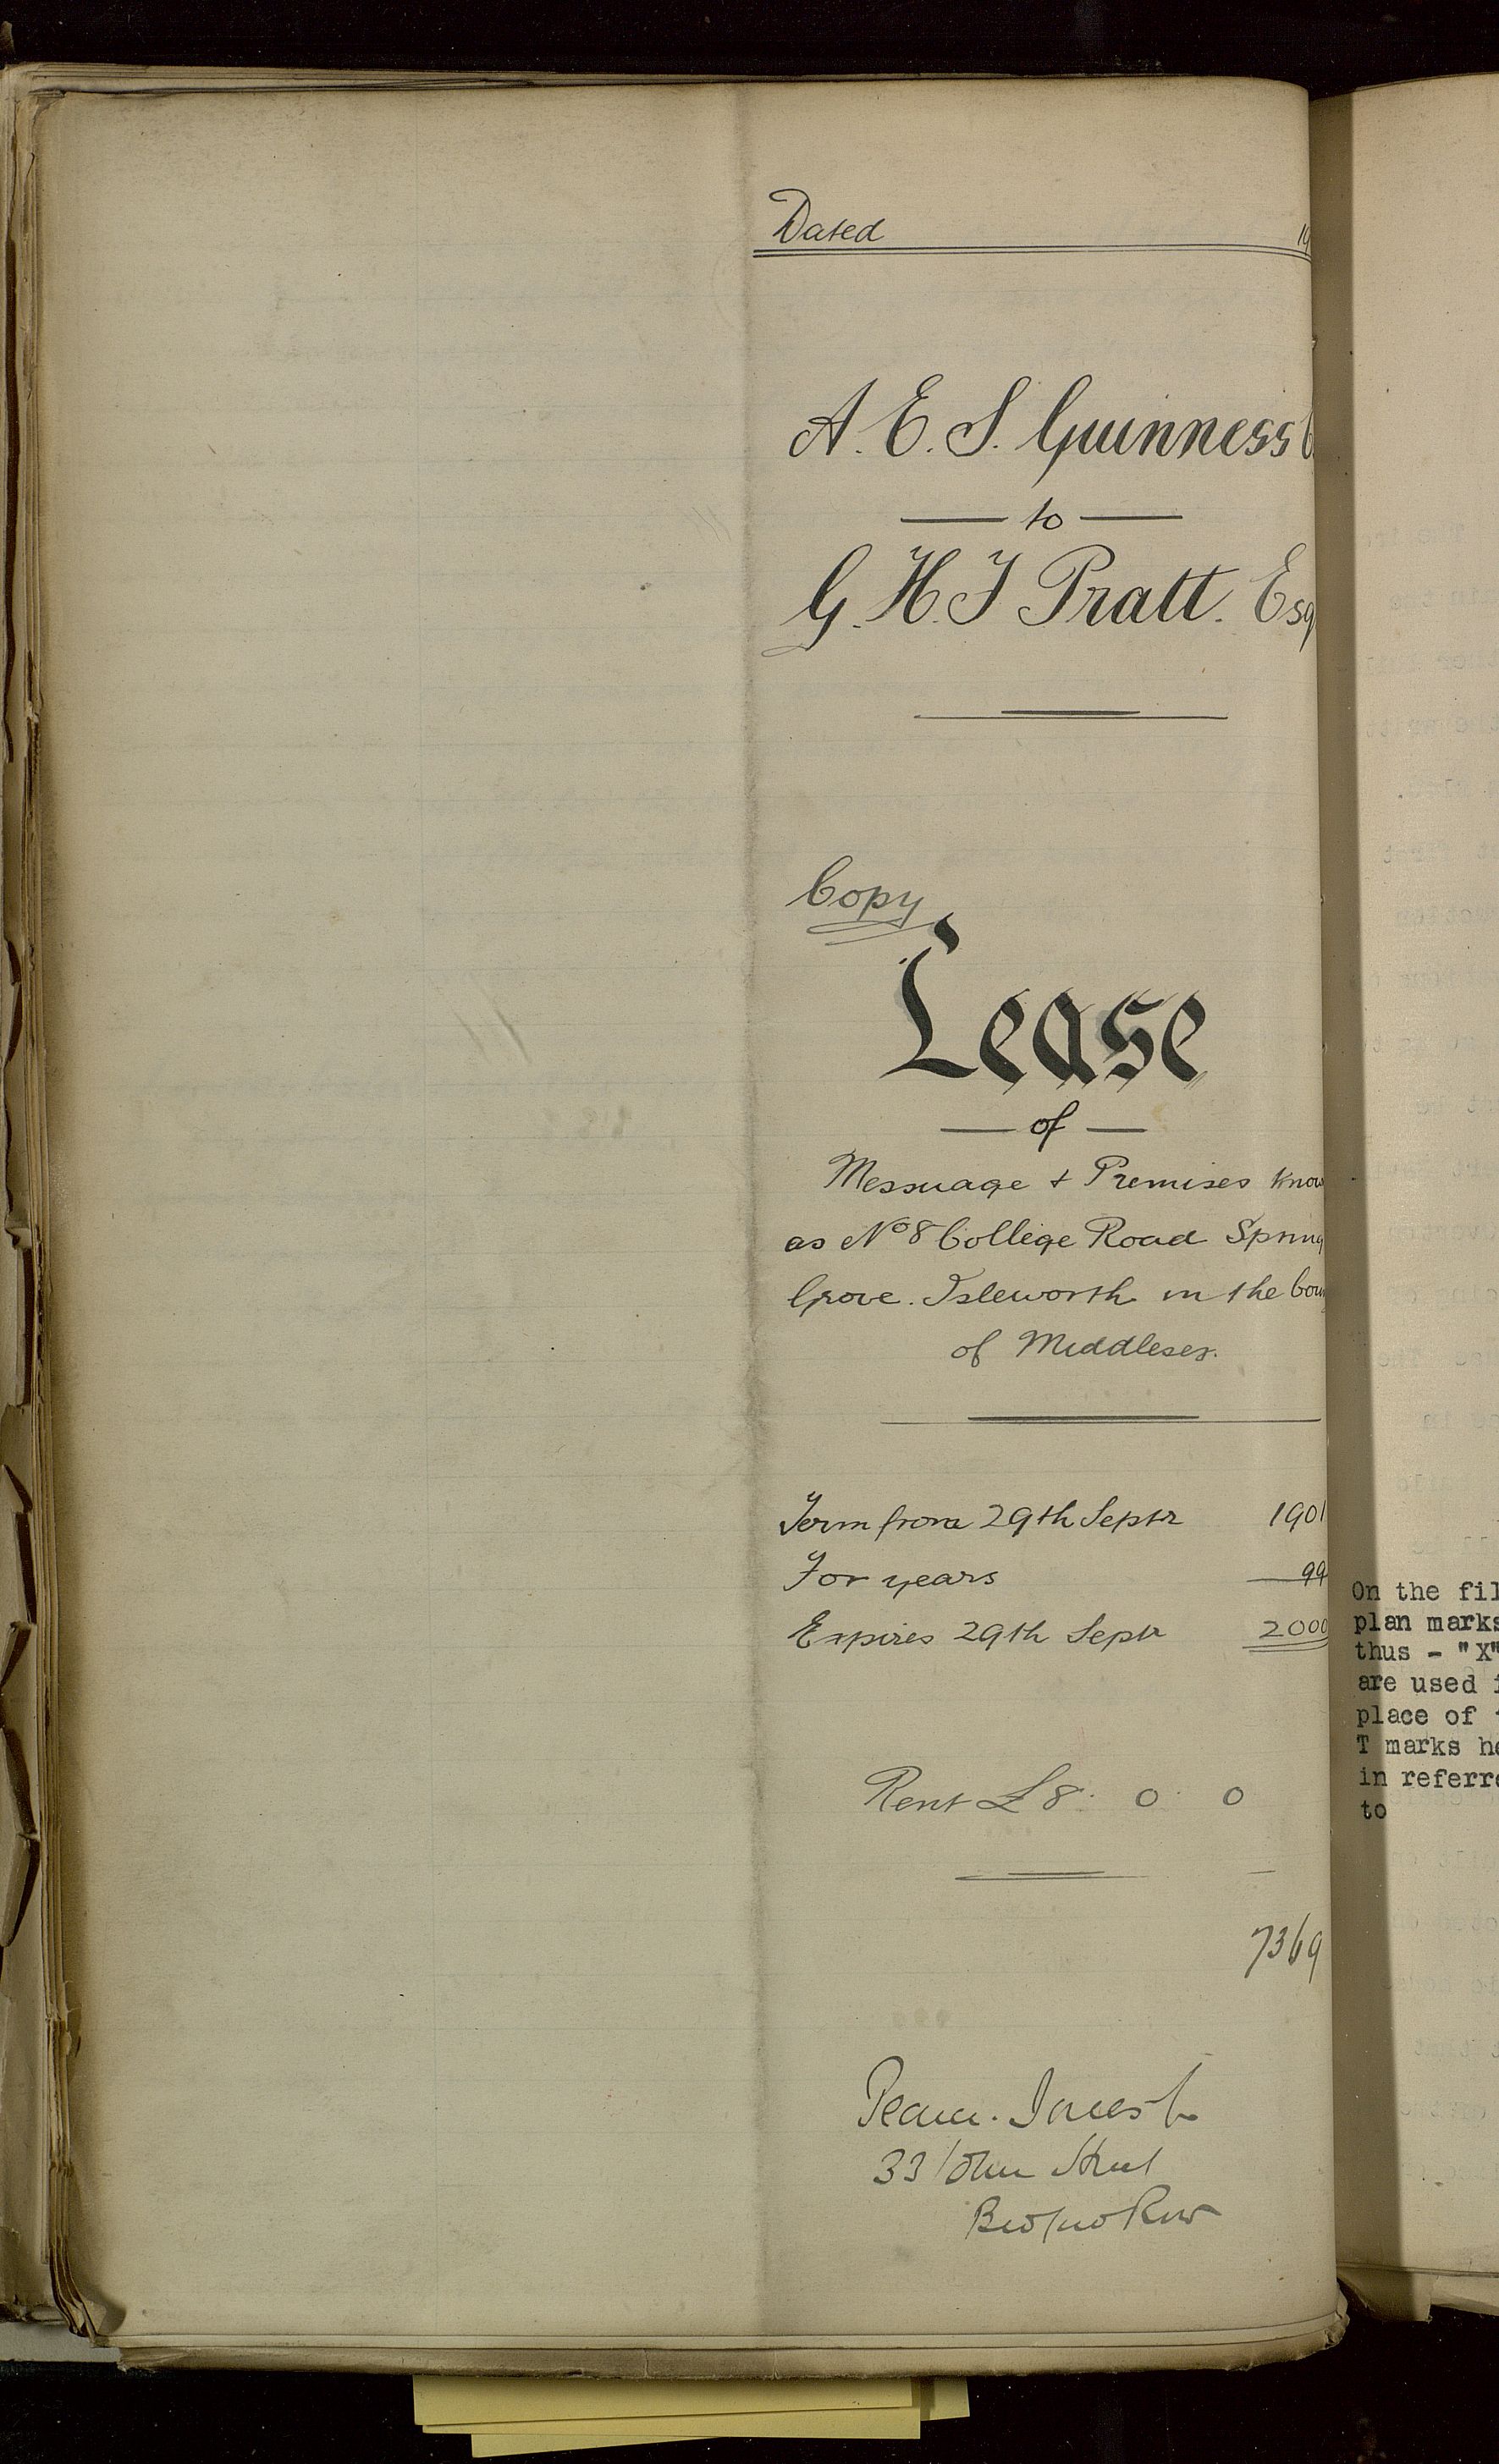 Dated 19
A. E. S. Guinness
to
G. H. J Pratt. Esq
Copy
Lease
of
Messuage + Premises know
as No 8 College Road Spring
Grove. Isleworth in the Coun
of Middlesex.
Term from 29th Septr 1901
For years 99
Expires 29th Septr 2000
Rent £8. 0. 0
7369
33 John Street
Bedford Row
On the fil
plan marks
thus - "X"
are used i
place of t
T marks he
in referre
to